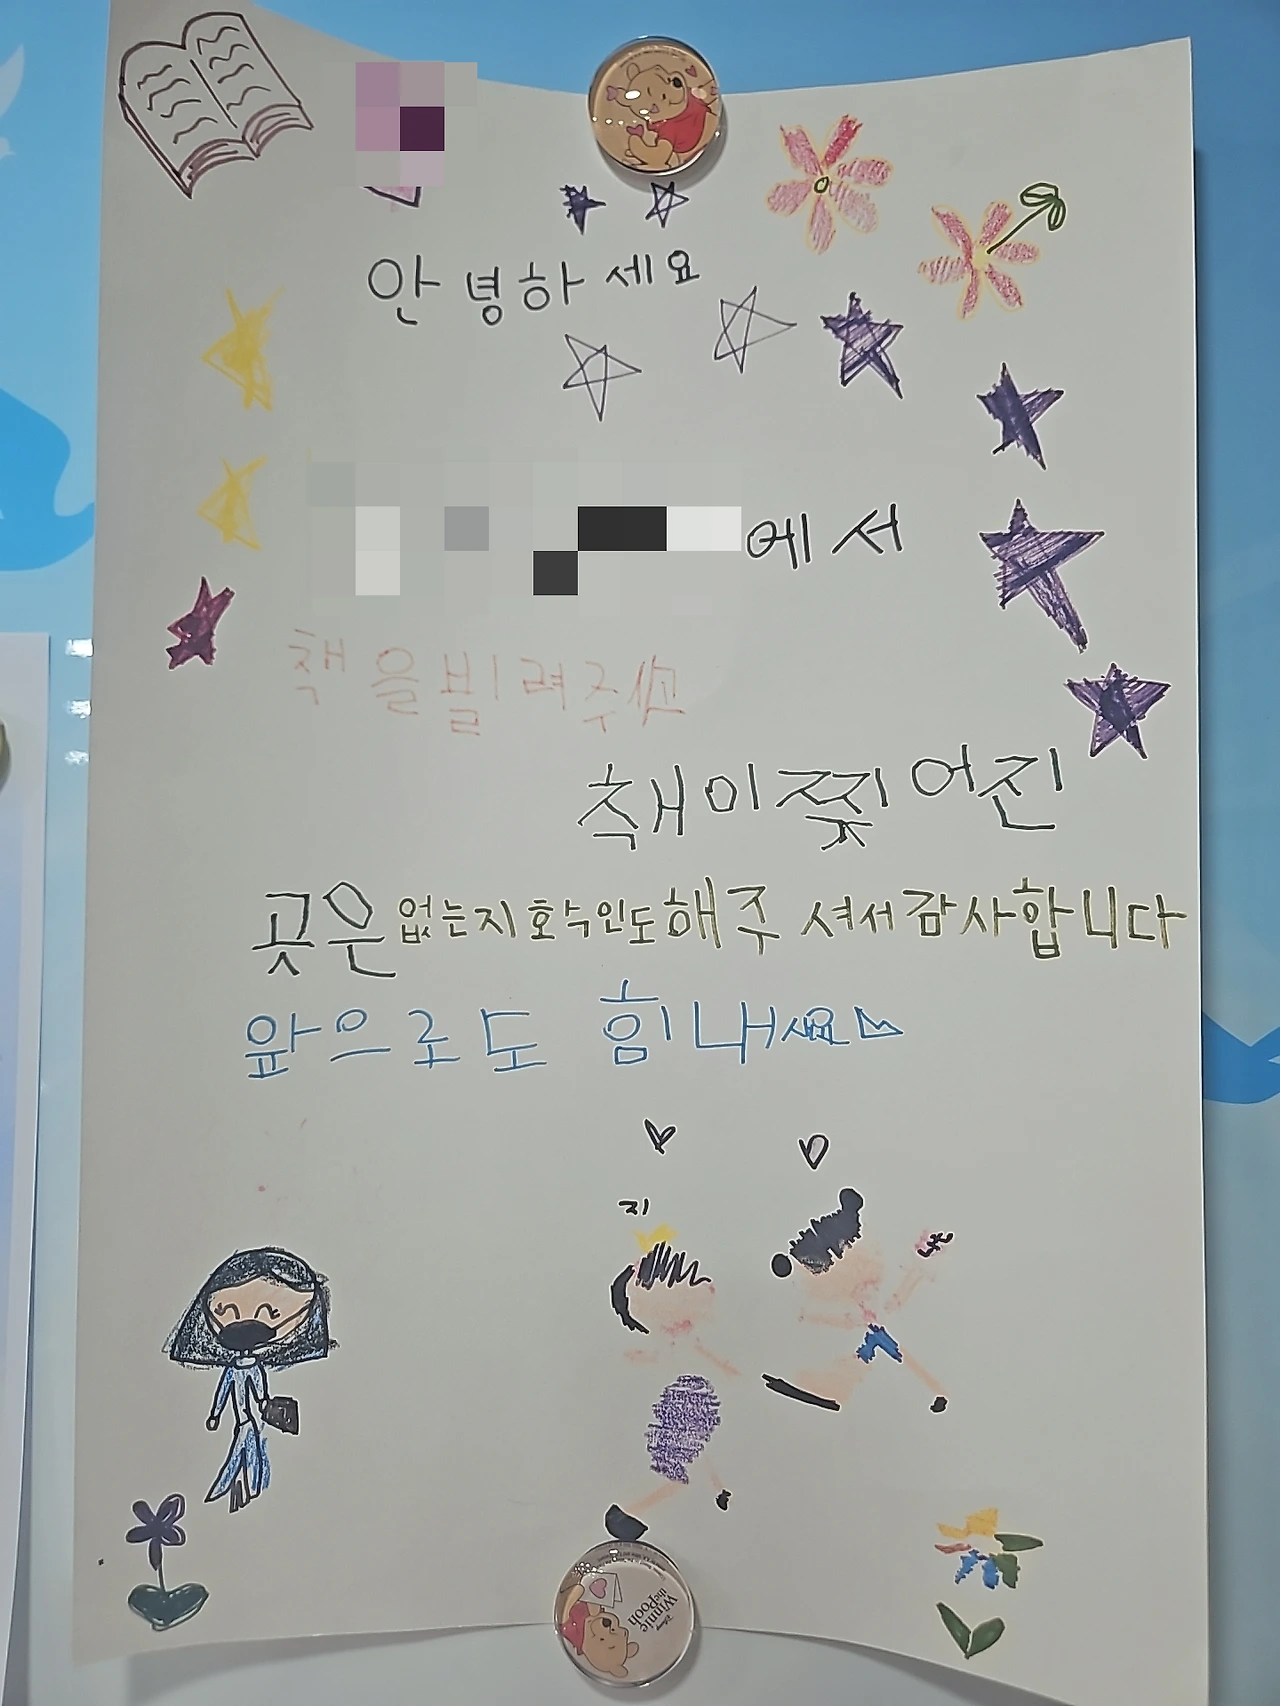 안녕하세요
에서
책을빌려주시고
책이찢어진
곳은없는지확인도해주셔서감사합니다
앞으로도 힘내세요
지
Disney
Winnie
the Pooh